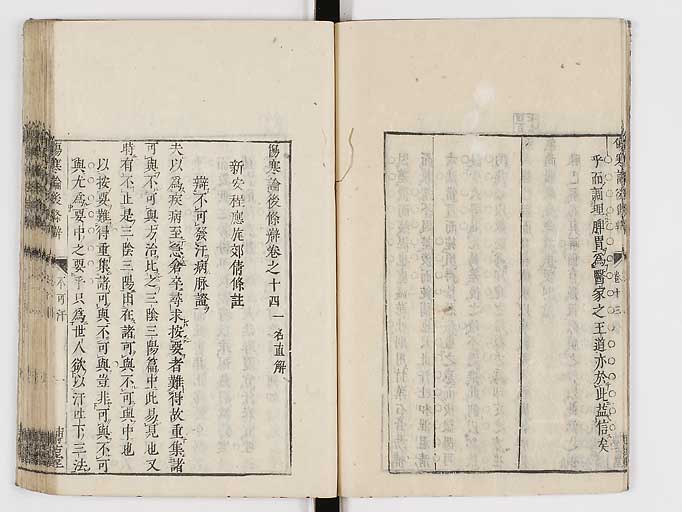 乎而調理脾胃為醫家之王道亦於此益信矣
傷寒論後條辨卷之十四 一名直解
新安程應旄郊倩條註
辨不可發汗病脉證
夫以為疾病至急倉卒尋求按要者難得故重集諸
可與不可與方治比之三陰三陽篇中此易見也又
時有不止是三陰三陽出在諸可與不可與中也
以按要難得重集諸可與不可與豈非可與不可
與尤為要中之要乎只為世人欲以汗吐下三法
傷寒論後條辨
不可汗